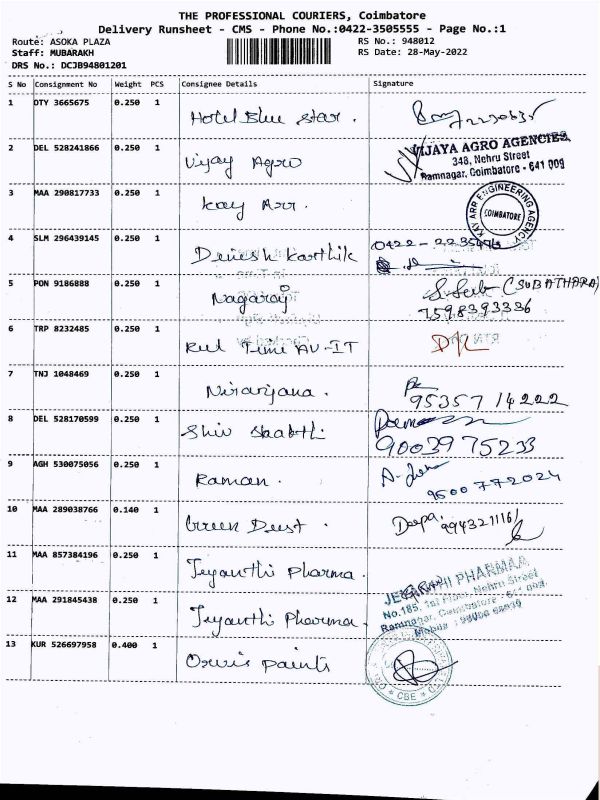 THE PROFESSIONAL COURIERS, Coimbatore
Delivery Runsheet - CMS - Phone No.:0422-3505555 - Page No.:1
Route: ASOKA PLAZA RS No.: 948012
Staff: MUBARAKH RS Date: 28-May-2022
DRS No.: DCJB94801201
S No Consignment No Weight PCS Consignee Details Signature
1 DTY 3665675 0.250 1 Hotel Blue Star.
2 DEL 528241866 0.250 1 Vijay Agro
VIJAYA AGRO AGENCIES
348, Nehru Street
Ramnagar, Coimbatore - 641 009
3 MAA 290817733 0.250 1 Kay Arr.
KAY ARR ENGINEERING AGENCY
COIMBATORE
4 SLM 296439145 0.250 1 Dinesh Karthik 0422-
5 PON 9186888 0.250 1 Nagaraj (SUBATHARA)
7598393336
6 TRP 8232485 0.250 1 Real Time AV-IT
7 TNJ 1048469 0.250 1 Niranjana.
95357 14222
8 DEL 528170599 0.250 1 Shiv Shakthi
9003975233
9 AGH 530075056 0.250 1 Raman.
9500772024
10 MAA 289038766 0.140 1 Green Dust. Deepa. 9943211161
11 MAA 857384196 0.250 1 Jeyanthi Pharma.
12 MAA 291845438 0.250 1 Jeyanthi Pharma.
PHARMAA
No.185, 1st Floor, Nehru Street
Ramnagar, Coimbatore - 641 009.
Mobile :
13 KUR 526697958 0.400 1 Orvis paints
CBE